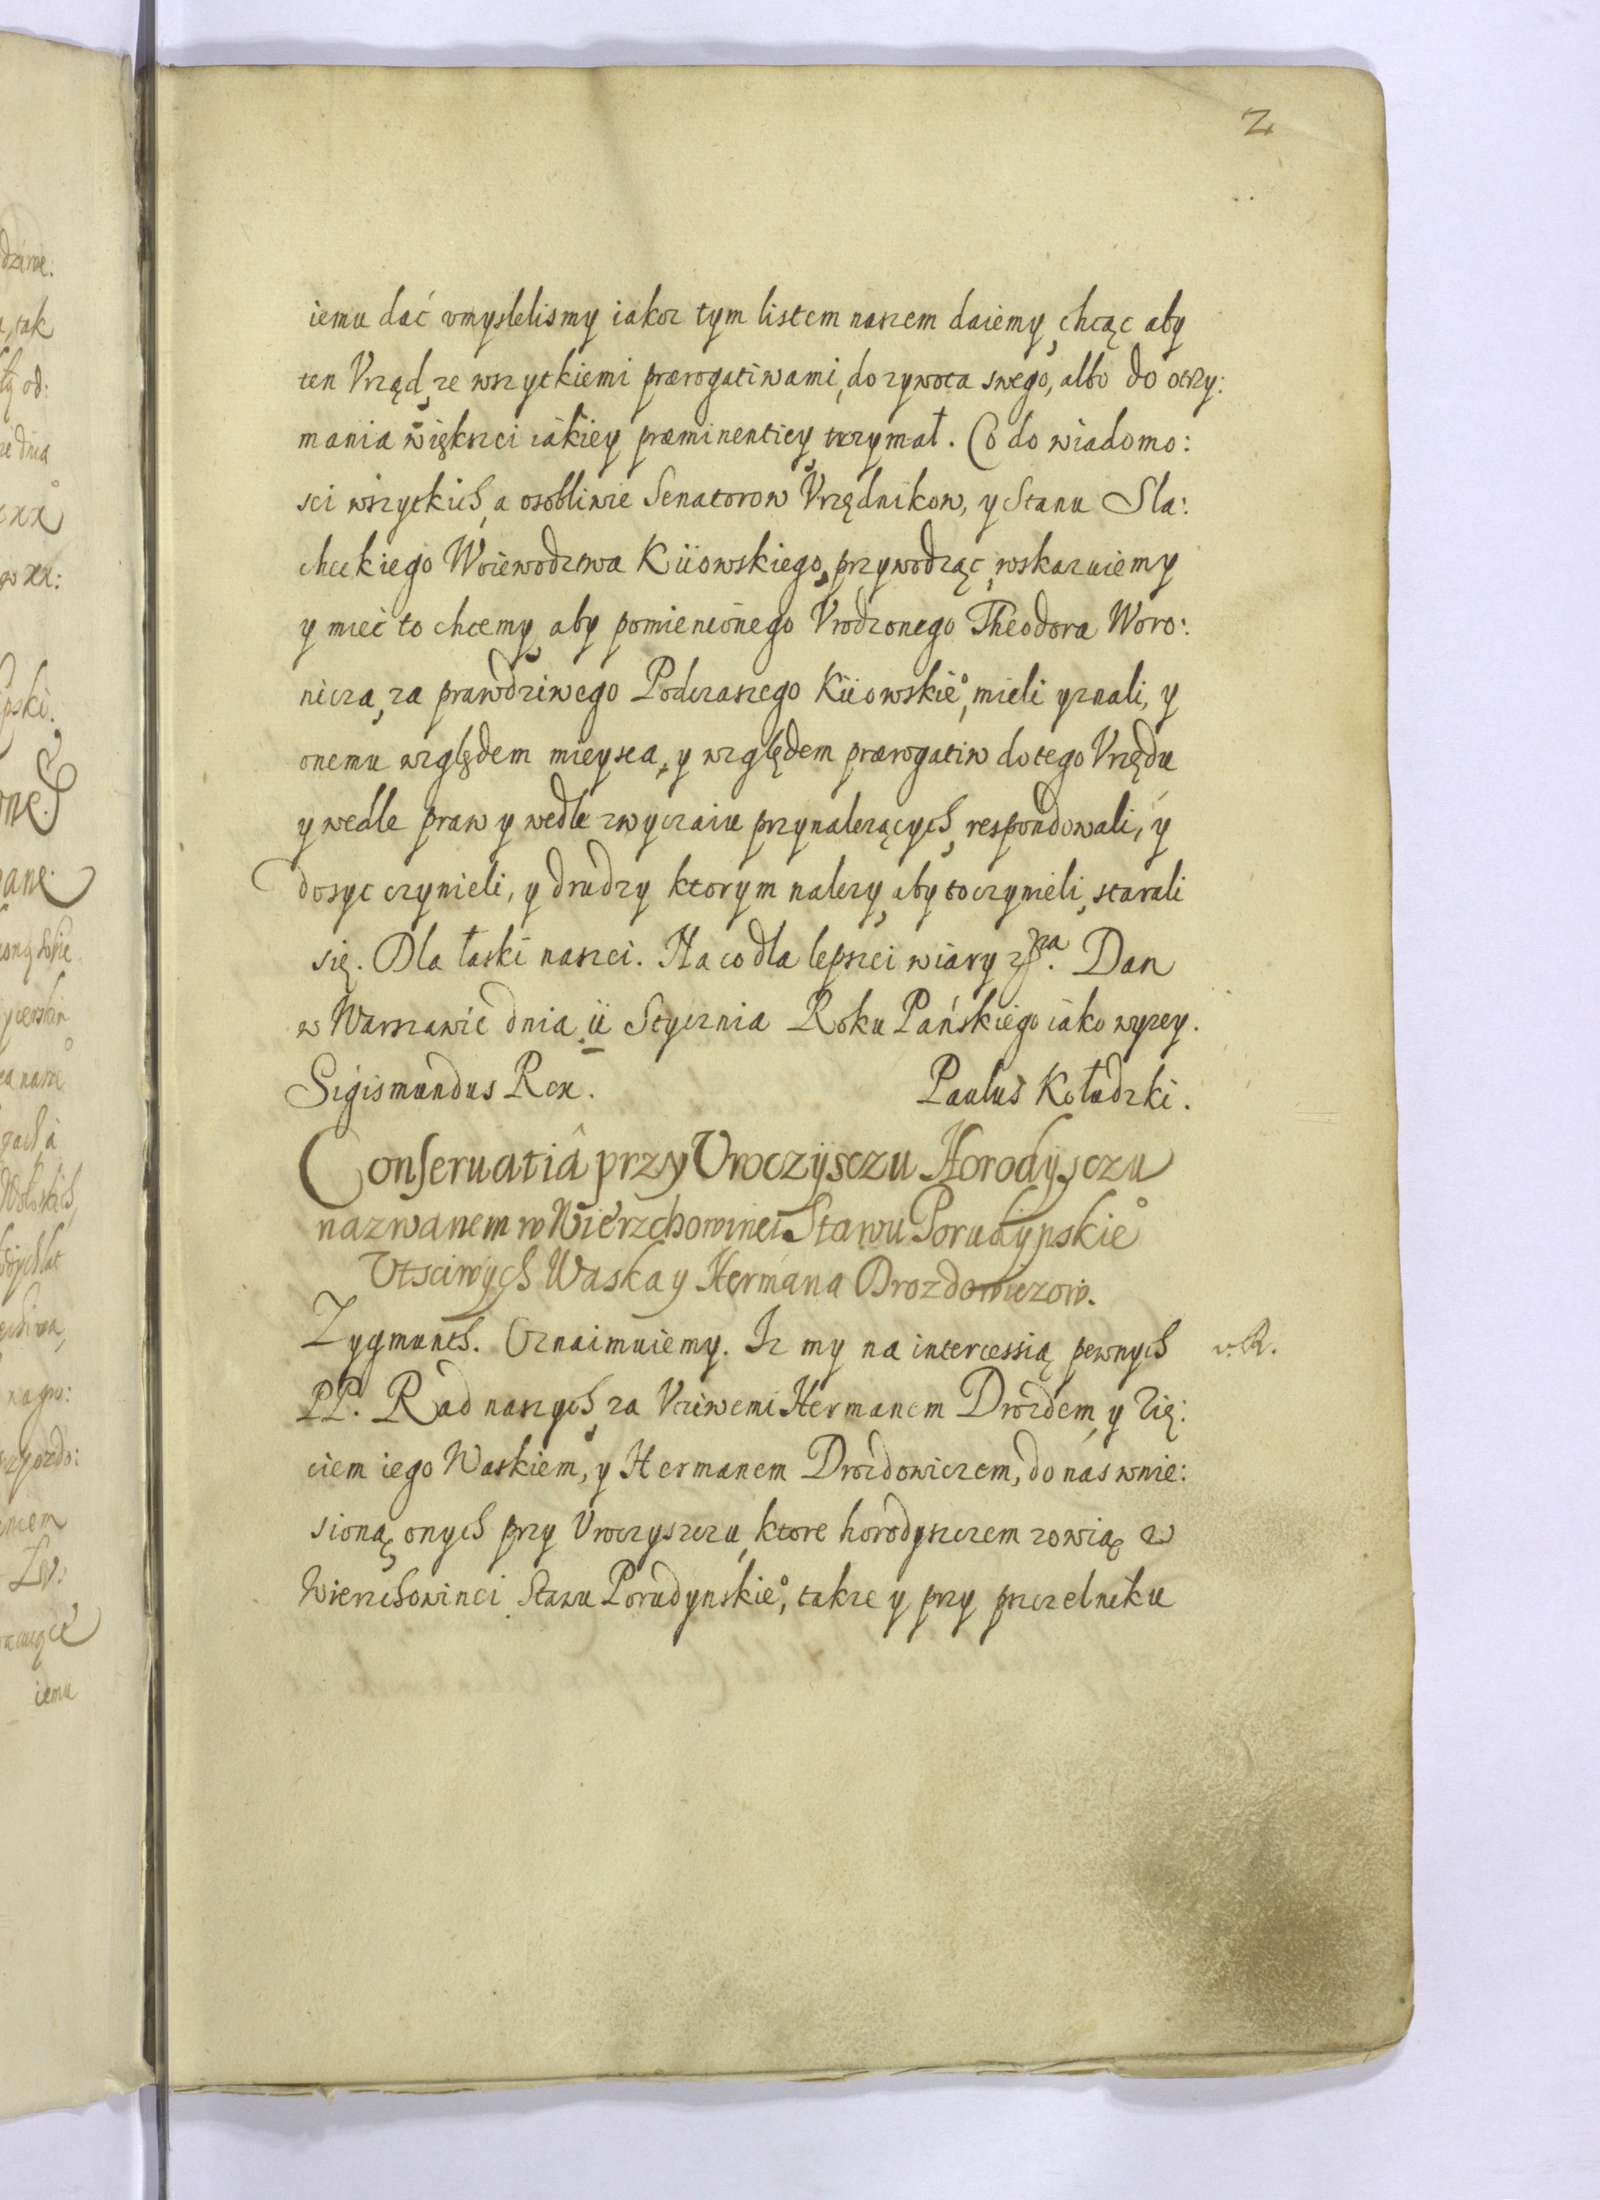 2
iemu dać vmyslelismy iakoz tym listem naszem daiemy, chcąc aby
ten Vrząd, ze wszytkiemi prærogatiwami, do zywota swego, albo do otrzy:
mania większei iakiey præminentiey, trzymał. Co do wiadomo:
sci wszytkich, a osobliwie Senatorow Vrzędnikow, y Stanu Sla:
checkiego Woiewodztwa Kiiowskiego, przywodząc, wskazuiemy
y mieć to chcemy, aby pomienionego Vrodzonego Theodora Woro:
nicza, za prawdziwego Podczaszego Kiiowskie°, mieli yznali, y
onemu względem mieysca, y względem prærogatiw do tego Vrzędu
y wedle praw y wedle zwyczaiu przynalezących, respondowali, y
dosyc czynieli, y drudzy ktorym nalezy, aby to czynieli, starali
się. Dla łaski naszei. Na co dla lepszei wiary Dan
w Warszawie dnia ii Stycznia Roku Pańskiego iako wyzey.
Sigismundus Rex. Paulus Kołudzki.
Conseruatia przy Vroczysczu Horodysczu
nazwanem w Wierzchowinei Stawu Porudynskie°
Vtsciwych Waska y Hermana Drozdowiczow.
Zygmunth. Oznaimuiemy. Iz my na intercessią pewnych
PP. Rad naszych, za Vcciwemi Hermanem Drozdem, y Zię:
ciem iego Waskiem, y Hermanem Drozdowiczem, do nas wnie:
sioną, onych przy Vroczyszczu, ktore horodyszczem zowią w
Wierzchowinei Stawu Porudynskie°, takze y przy pszczelniku